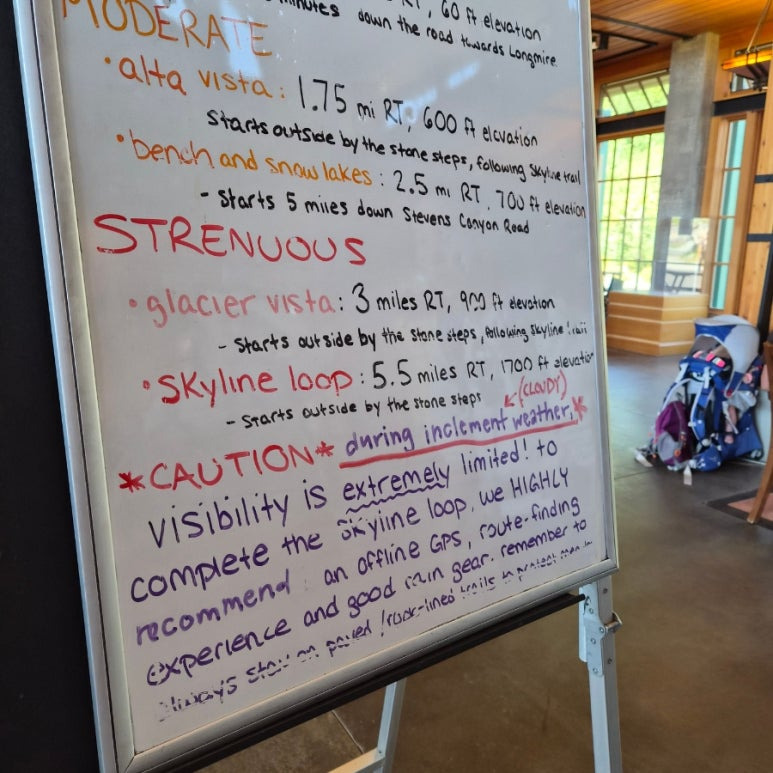 RT, 60 ft elevation
minutes down the road towards Longmire.
MODERATE
• alta vista: 1.75 mi RT, 600 ft elevation
Starts outside by the stone steps, following Skyline trail
• bench and snow lakes: 2.5 mi RT, 700 ft elevation
- Starts 5 miles down Stevens Canyon Road
STRENUOUS
• glacier vista: 3 miles RT, 900 ft elevation
- Starts outside by the stone steps, following Skyline trail
• Skyline loop: 5.5 miles RT, 1700 ft elevation
- Starts outside by the stone steps
(CLOUDY)
*CAUTION* during inclement weather,*
visibility is extremely limited! to
complete the Skyline loop, we HIGHLY
recommend an offline GPS, route-finding
experience and good rain gear. remember to
always stay on paved / rock-lined trails to protect